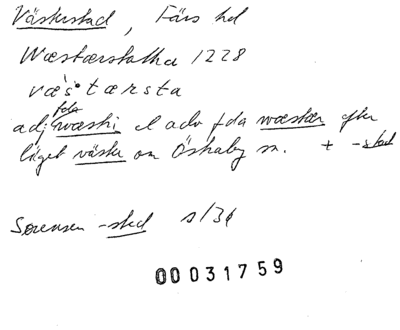 Västerstad, Färs hd
Wæstærstatha 1228
væs·tærsta
fda
adj. wæstri el adv fda wæstær efter
läget väster om Öskaby sn. + -stad
Sørensen -sted s/36
00031759